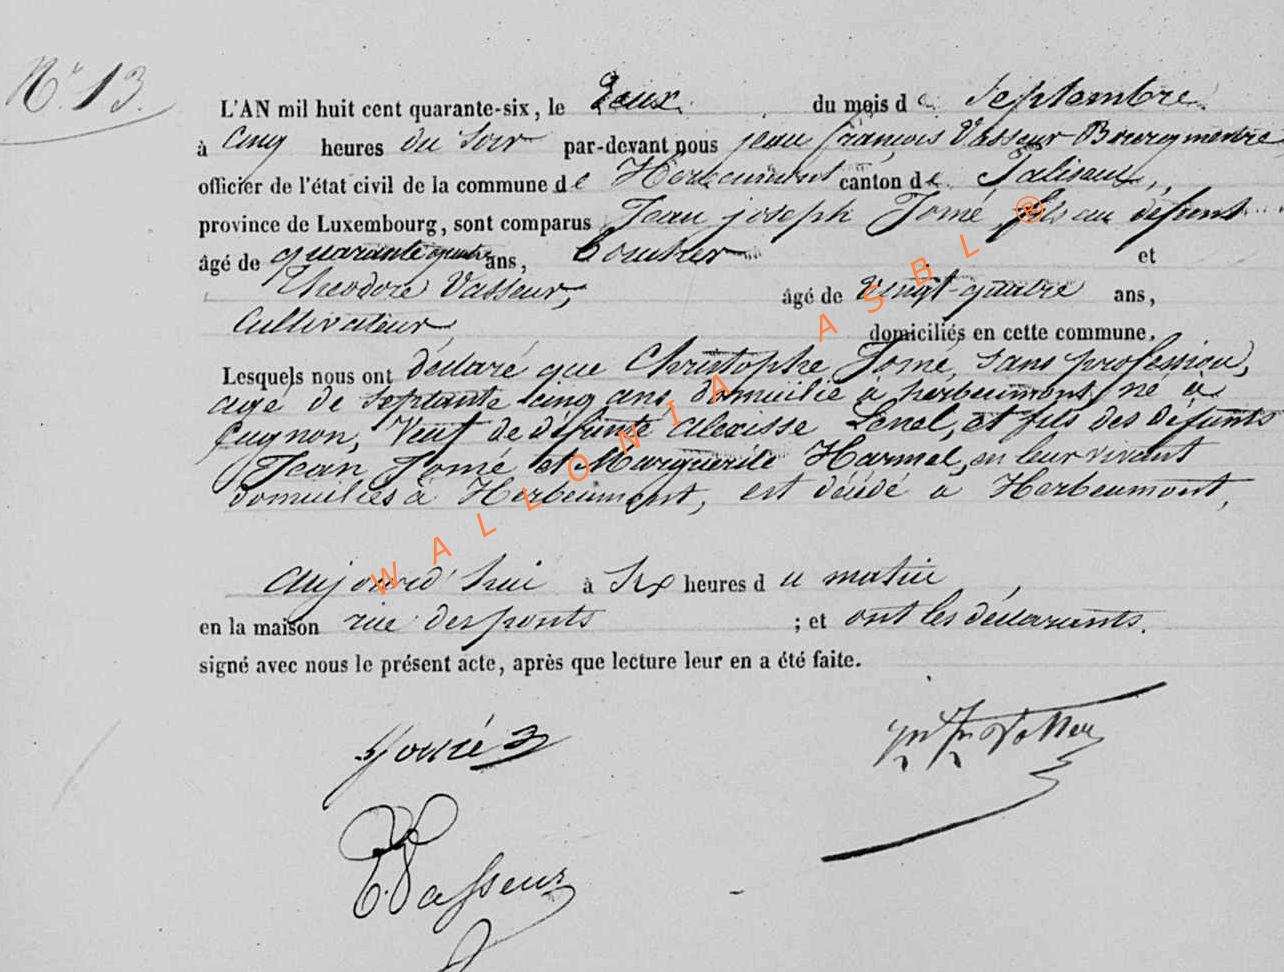 N° 13.
L'AN mil huit cent quarante-six, le Deux du mois de Septembre
à Cinq heures du Soir par-devant nous jean françois Vasseur Bourgmestre
officier de l'état civil de la commune de Herbeumont canton de Paliseux,
province de Luxembourg, sont comparus Jean joseph Jomé, fils au défunt
âgé de quarante quatre ans, et
Théodore Vasseur, âgé de vingt-quatre ans,
Cultivateur domiciliés en cette commune.
Lesquels nous ont déclaré que Christophe Jomé, sans profession,
agé de septante cinq ans, domicilié à herbeumont, né a
Cugnon, Veuf de défunte Alexisse Lenel, et fils des défunts
Jean Jomé et Marguerite Harmel, en leur vivant
domiciliés à Herbeumont, est décédé a Herbeumont,
aujourd'hui à Six heures du matin
en la maison rue des ponts ; et ont les déclarants.
signé avec nous le présent acte, après que lecture leur en a été faite.
Jomé
T. Vasseur
WALLONIA ASBL ®